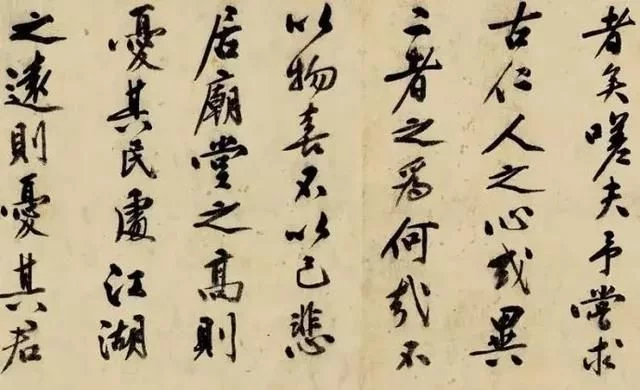 者矣嗟夫予嘗求
古仁人之心或異
二者之為何哉不
以物喜不以己悲
居廟堂之高則
憂其民處江湖
之遠則憂其君